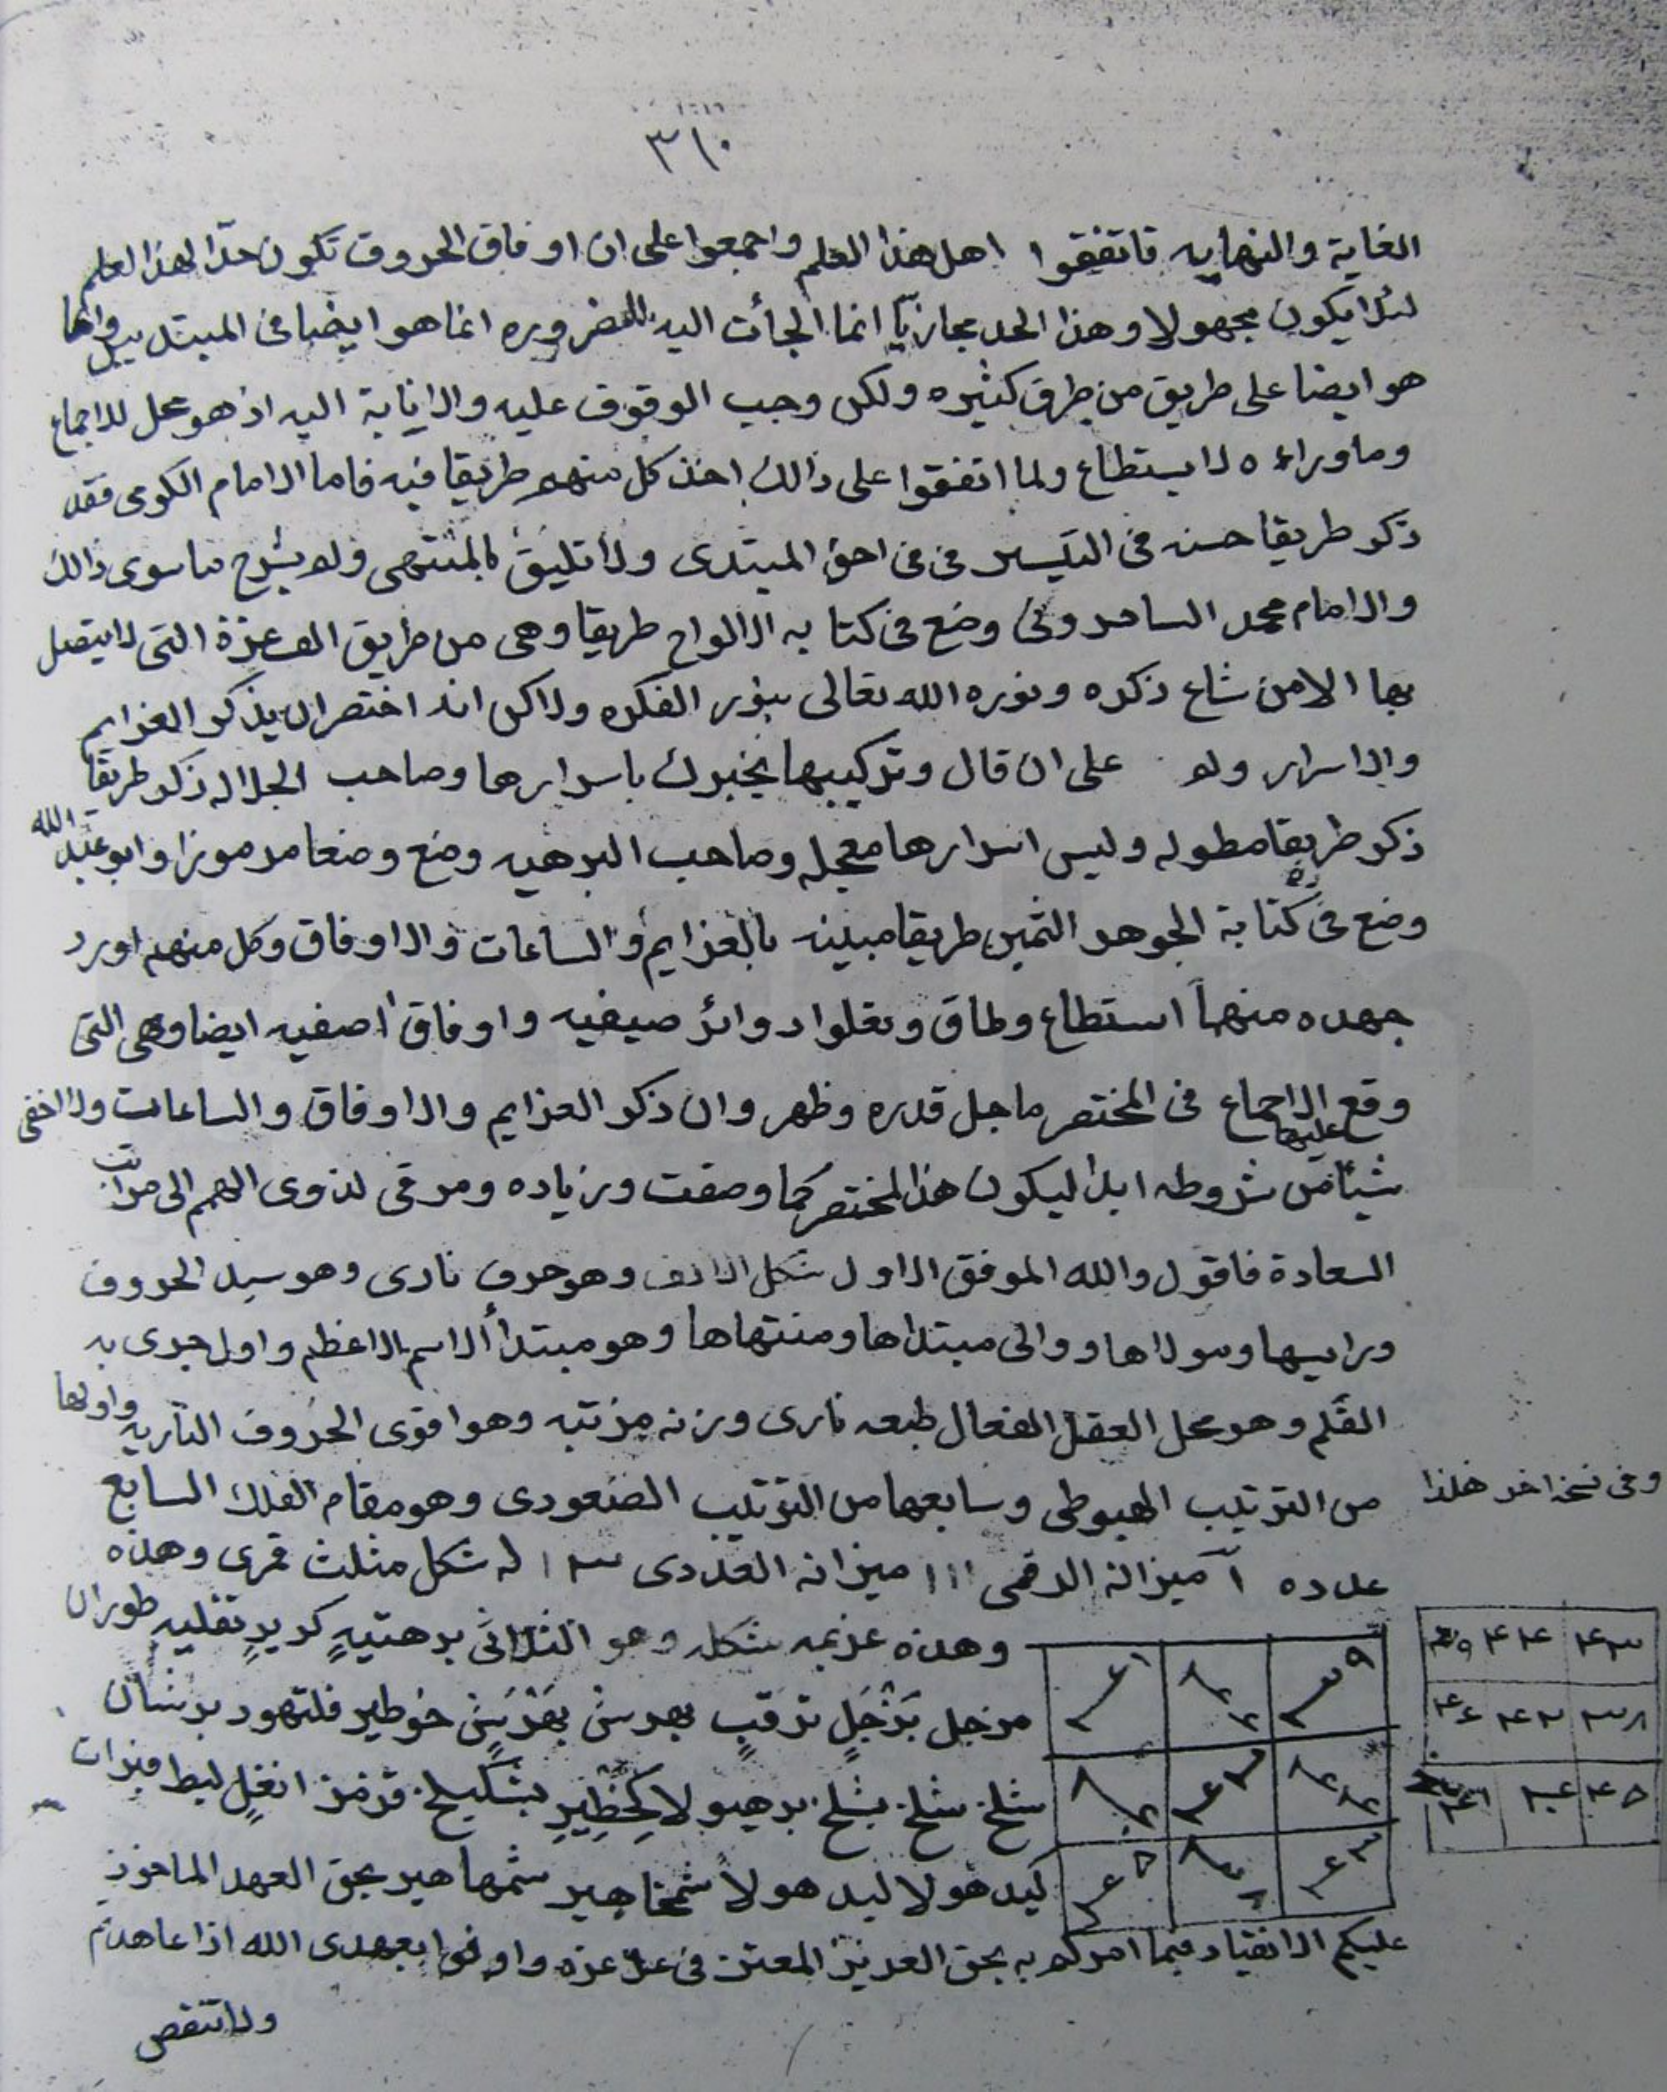 ٣١٠
الغاية والنهايه فاتفقوا اهل هذا العلم واجمعوا على ان اوفاق الحروف تكون حدّا لهذا العلم
لئلا يكون مجهولا وهذا الحد مجازيّا انما الجأت اليه الضروره انما هو ايضا فى المبتديين وانما
هو ايضا على طريق من طرق كثيره ولكن وجب الوقوف عليه والانابة اليه اذ هو محل للاجماع
وما وراءه لا يستطاع ولما اتفقوا على ذالك اخذ كل منهم طريقا فيه فاما الامام الكومى فقد
ذكر طريقا حسنه فى التكسير فى احق المبتدى ولا تليق بالمنتهى ولم يشرح ما سوى ذالك
والامام محمد السامرونى وضع فى كتابه الالواح طريقا وهى من طريق التى لا يتصل
بها الا من شاع ذكره ونوره الله تعالى بنور الفكره ولاكن انه اختصر ان يذكر العزايم
والاسرار ولم على ان قال وتركيبها يخبرك باسرارها وصاحب الجلاله ذكر طريقا
ذكر طريقا مطوله وليس اسرارها معجله وصاحب البرهيه وضع وضعا مرموزا وابو عبد الله
وضع فى كتابة الجوهر الثمين طريقا مبينه بالعزايم والساعات والاوفاق وكل منهم اورد
جهده منهاا استطاع وطاق ونقلوا دوائر صيفيه واوفاق اصفيه ايضا وهى التى
وقع الاجماع عليها فى المختصر ما جل قدره وظهر وان ذكر العزايم والاوفاق والساعات ولا اخفى
شيئا من شروطه ابدا ليكون هذا المختصر كما وصفت وزياده ومرقى لذوى الهمم الى مراتب
السعادة فاقول والله الموفق الاول شكل الالف وهو حرف نارى وهو سيد الحروف
ورايسها ومولاها ووالى مبتداها ومنتهاها وهو مبتدأ الاسم الاعظم واول جرى به
القلم وهو محل العقل الفعال طبعه نارى وزنه مرتبه وهو اقوى الحروف الناريه واولها
من الترتيب الهبوطى وسابعها من الترتيب الصعودى وهو مقام الفلك السابع
وفى نسخه اخر هكذا
عدده ١ ميزانه الرقمى ١١١ ميزانه العددى ١٣ له شكل مثلث قمرى وهذه
وهذه عزيمه شكله وهو الثلاثى برهتيهٍ كريرٍ تتليه طوران
مزجل بَزْجَلٍ ترقبٍ بهرش بَهْرَشٍ خوطير قلنهود برشان
شلخ شلخ بشلخ برهيولا كَخِظِيرٍ بشكيلخ قزمز انغلٍ ليط قبرات
كيد هولا ليد هولا شمخاهير شمهاهير بحق العهد الماخوذ
عليكم الانقياد فيما امركم به بحق العزيز المعتز فى عز عزه واوفوا بعهدى الله اذا عاهدتم
ولا تنقض